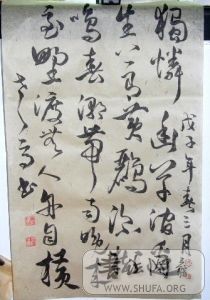 戊子年春三月
獨憐幽草澗邊
生上有黃鸝深樹
鳴春潮帶雨晚來
急野渡無人舟自橫
書
www.SHUFA.ORG